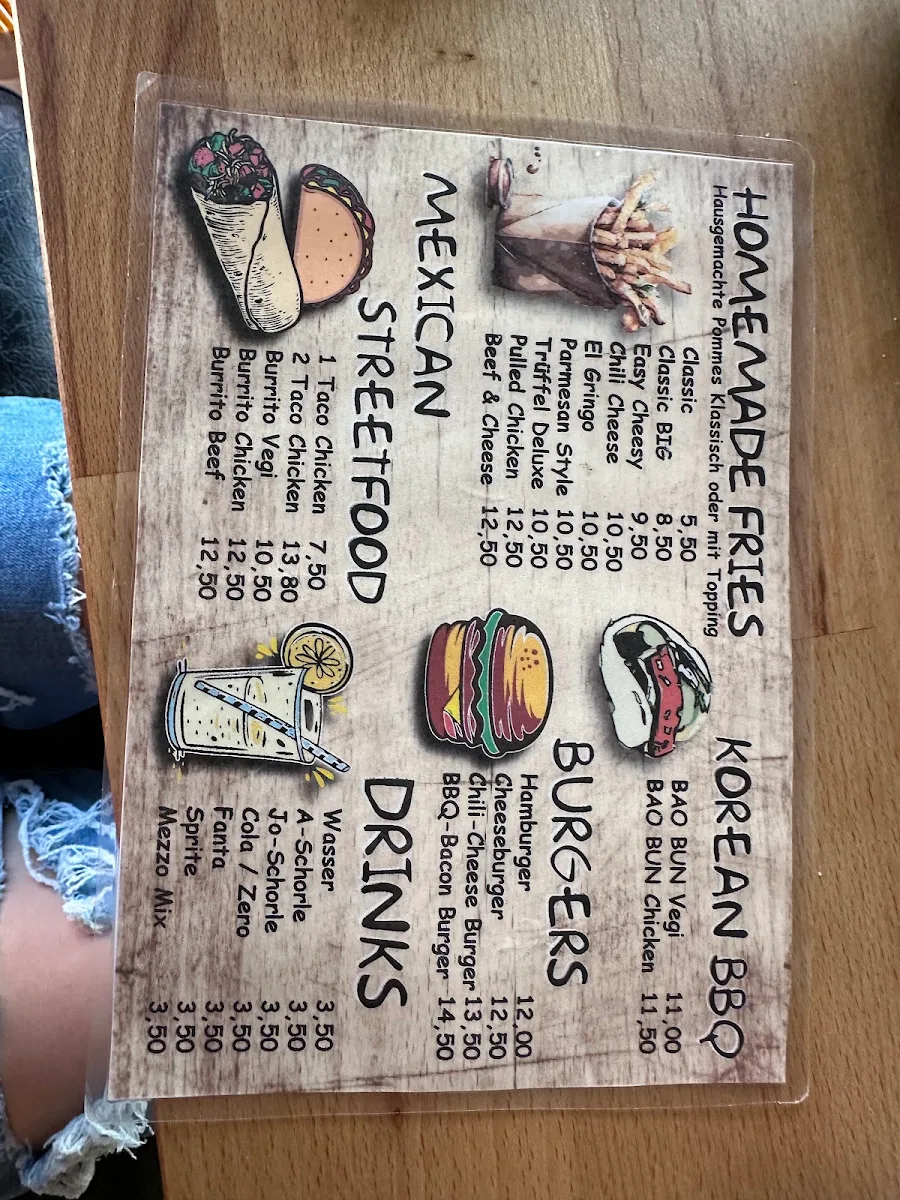 HOMEMADE FRIES
Hausgemachte Pommes Klassisch oder mit Topping
Classic 5,50
Classic BIG 8,50
Easy Cheesy 9,50
Chili Cheese 10,50
El Gringo 10,50
Parmesan Style 10,50
Trüffel Deluxe 10,50
Pulled Chicken 12,50
Beef & Cheese 12,50
MEXICAN
STREETFOOD
1 Taco Chicken 7,50
2 Taco Chicken 13,80
Burrito Vegi 10,50
Burrito Chicken 12,50
Burrito Beef 12,50
KOREAN BBQ
BAO BUN Vegi 11,00
BAO BUN Chicken 11,50
BURGERS
Hamburger 12,00
Cheeseburger 12,50
Chili-Cheese Burger 13,50
BBQ-Bacon Burger 14,50
DRINKS
Wasser 3,50
A-Schorle 3,50
Jo-Schorle 3,50
Cola / Zero 3,50
Fanta 3,50
Sprite 3,50
Mezzo Mix 3,50